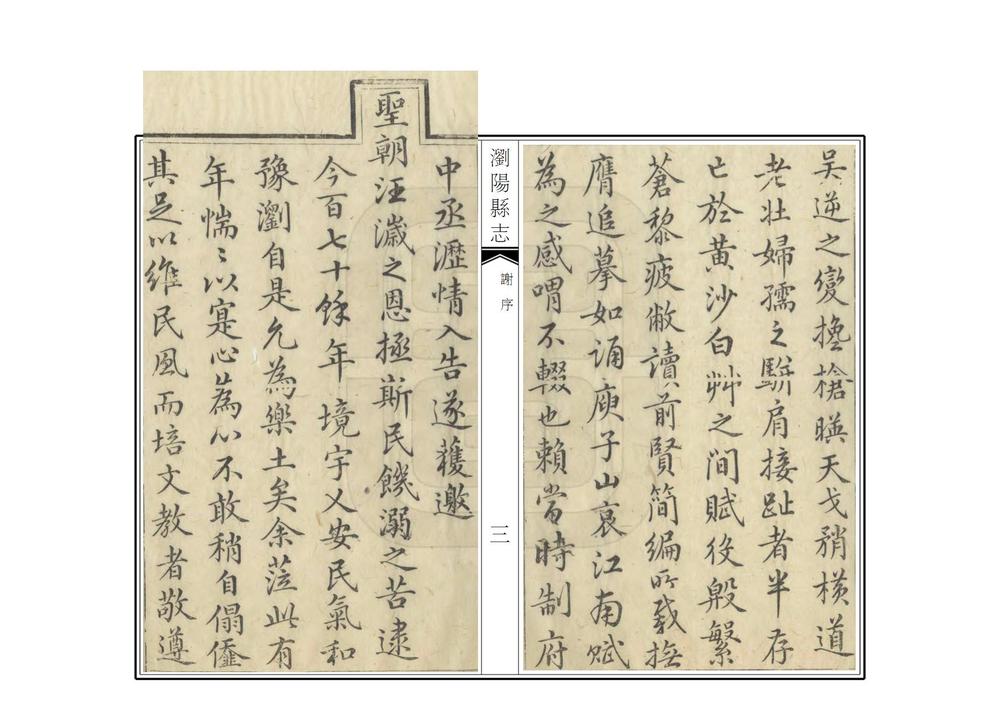 吳逆之變攙槍暎天戈矟橫道
老壯婦孺之駢肩接趾者半存
亡於黃沙白艸之間賦役殷繁
蒼黎疲敝讀前賢簡編所載撫
膺追摹如誦庾子山哀江南賦
為之感喟不輟也賴當時制府
瀏陽縣志
謝序
三
中丞瀝情入告遂獲邀
聖朝汪濊之恩拯斯民饑溺之苦逮
今百七十餘年境宇乂安民氣和
豫瀏自是允為樂土矣余蒞此有
年惴〻以寔心為心不敢稍自偈僿
其足以維民風而培文教者敬遵